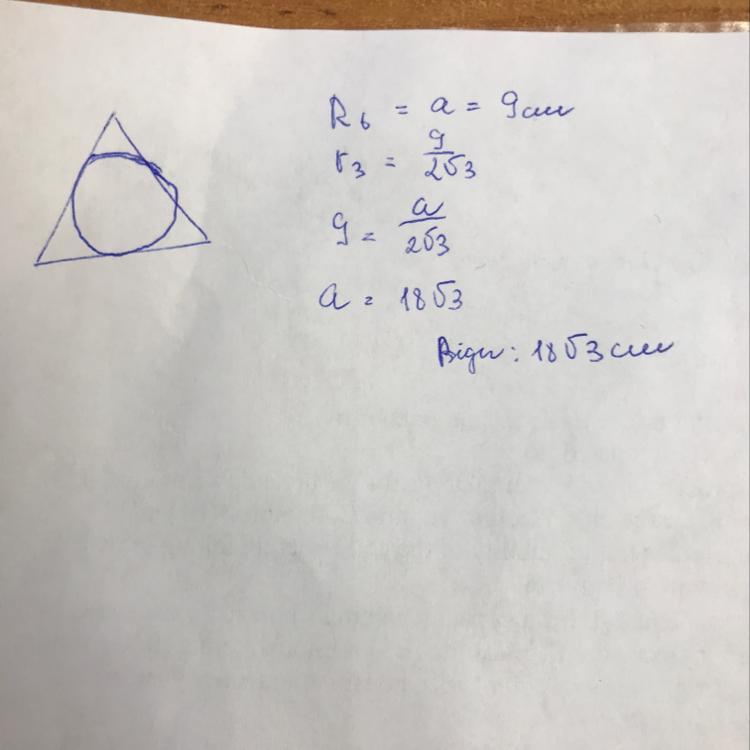 R₆ = a = 9см
r₃ = 9/2√3
9 = a/2√3
a = 18√3
Відп: 18√3 см